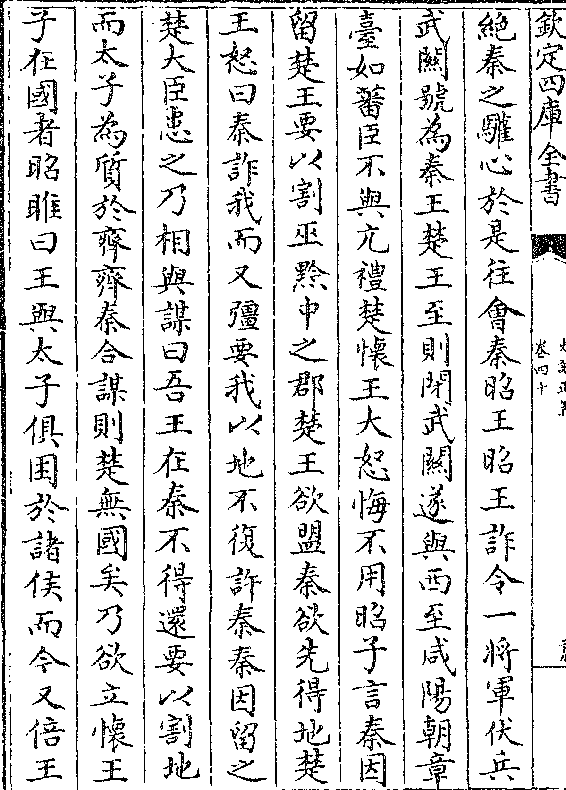 欽定四庫全書
卷四十
絶秦之驩心於是往會秦昭王昭王詐令一將軍伏兵
武關號為秦王楚王至則閉武關遂與西至咸陽朝章
臺如蕃臣不與亢禮楚懷王大怒悔不用昭子言秦因
留楚王要以割巫黔中之郡楚王欲盟秦欲先得地楚
王怒曰秦詐我而又彊要我以地不復許秦秦因留之
楚大臣患之乃相與謀曰吾王在秦不得還要以割地
而太子為質於齊齊秦合謀則楚無國矣乃欲立懷王
子在國者昭睢曰王與太子俱困於諸侯而今又倍王